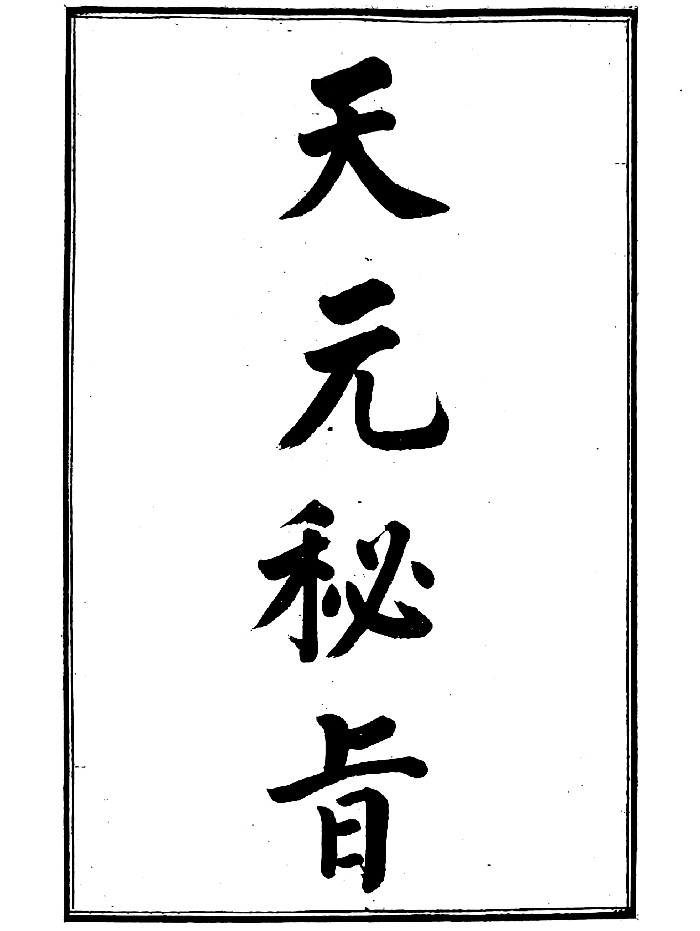 天元秘旨